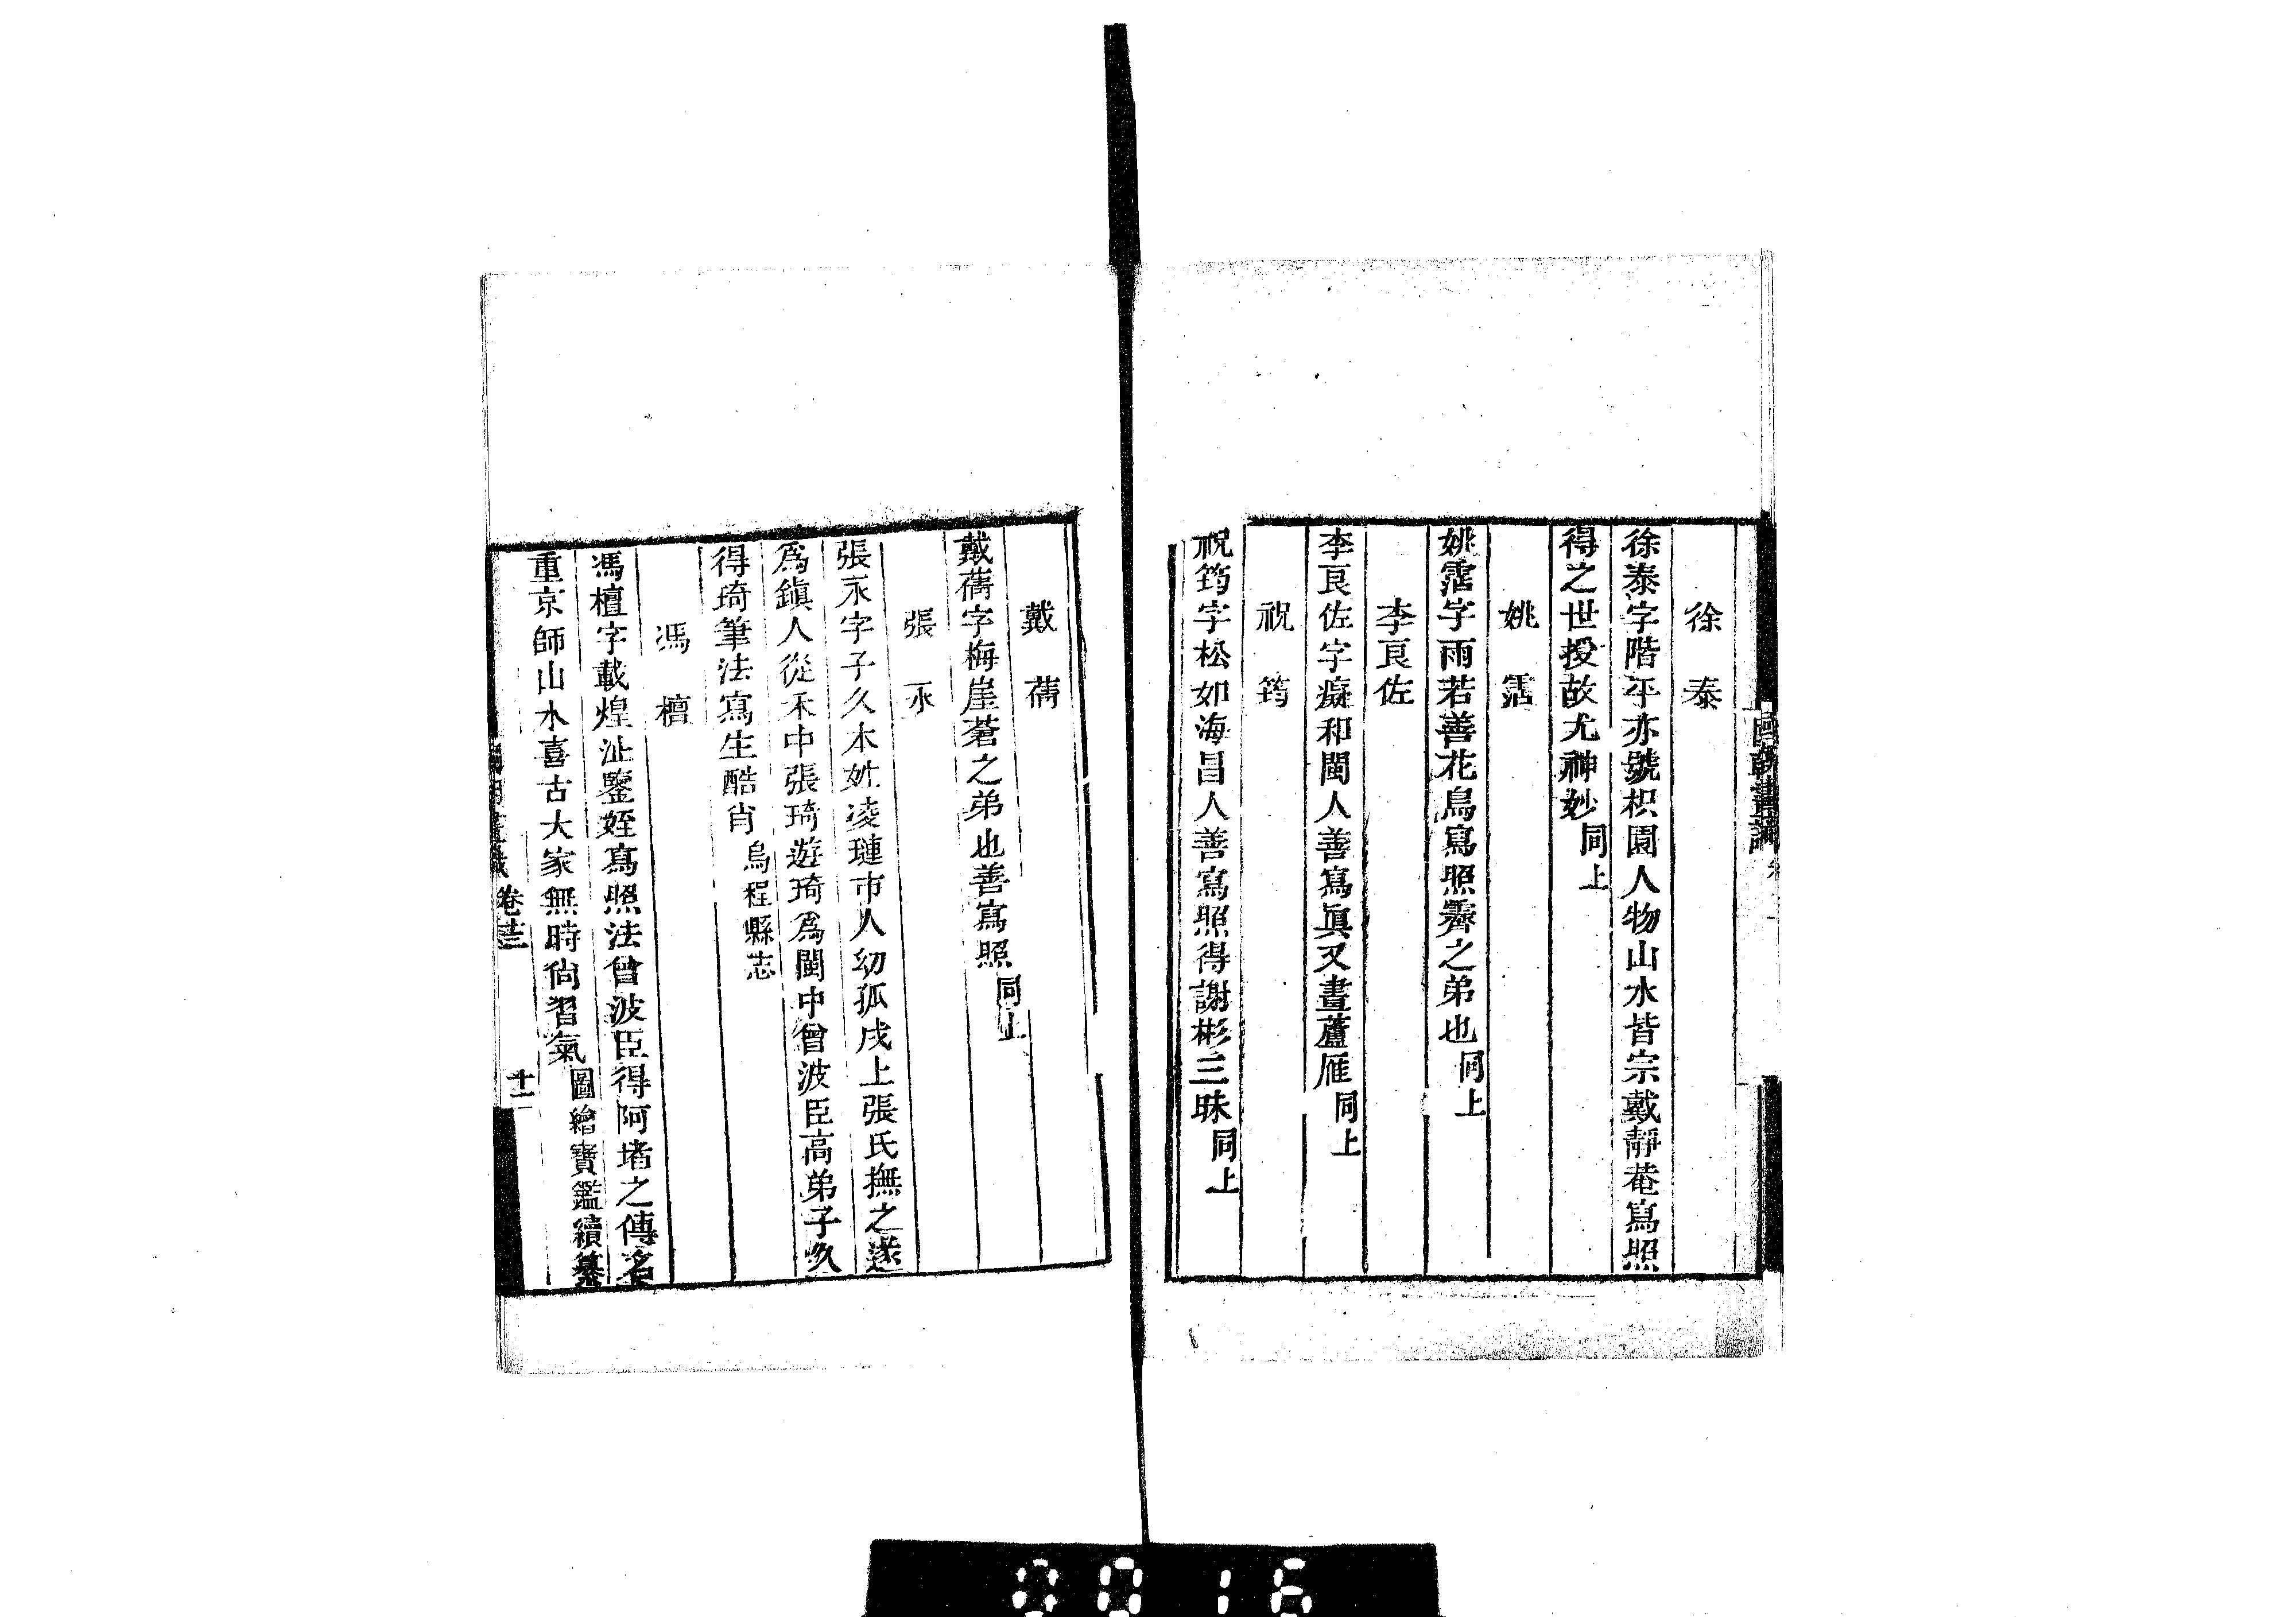 國朝畫識
徐泰
徐泰字階平亦號枳園人物山水皆宗戴靜菴寫照
得之世授故尤神妙同上
姚霑
姚霑字雨若善花鳥寫照霽之弟也同上
李良佐
李良佐字癡和閩人善寫眞又畫蘆雁同上
祝筠
祝筠字松如海昌人善寫照得謝彬三昧同上
戴蒨
戴蒨字梅崖蒼之弟也善寫照同上
張永
張永字子久本姓凌璉市人幼孤戍上張氏撫之遂
爲鎭人從禾中張琦遊琦爲閩中曾波臣高弟子久
得琦筆法寫生酷肖烏程縣志
馮檀
馮檀字載煌沚鑒姪寫照法曾波臣得阿堵之傳名
重京師山水喜古大家無時尙習氣圖繪寶鑑續纂
卷
十二
0016